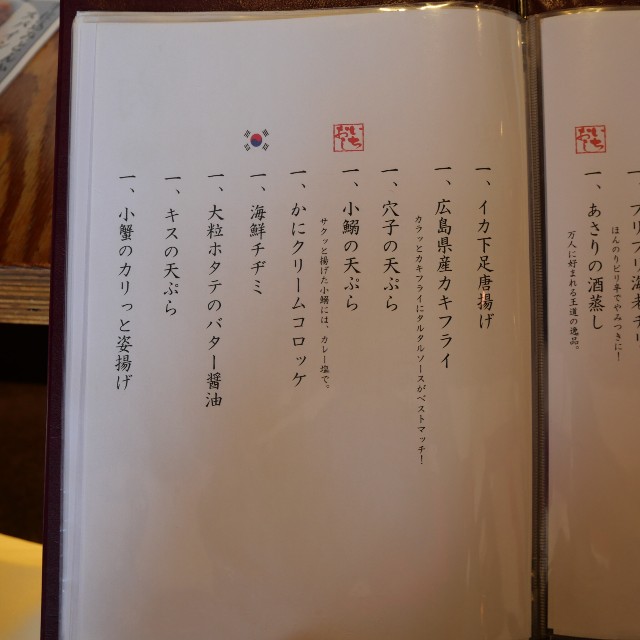 プリプリ海老チ
ほんのりピリ辛でやみつきに!
いちおし
一、あさりの酒蒸し
万人に好まれる王道の逸品。
一、イカ下足唐揚げ
一、広島県産カキフライ
カラッとカキフライにタルタルソースがベストマッチ!
一、穴子の天ぷら
いちおし
一、小鰯の天ぷら
サクッと揚げた小鰯には、カレー塩で。
一、かにクリームコロッケ
一、海鮮チヂミ
一、大粒ホタテのバター醤油
一、キスの天ぷら
一、小蟹のカリっと姿揚げ